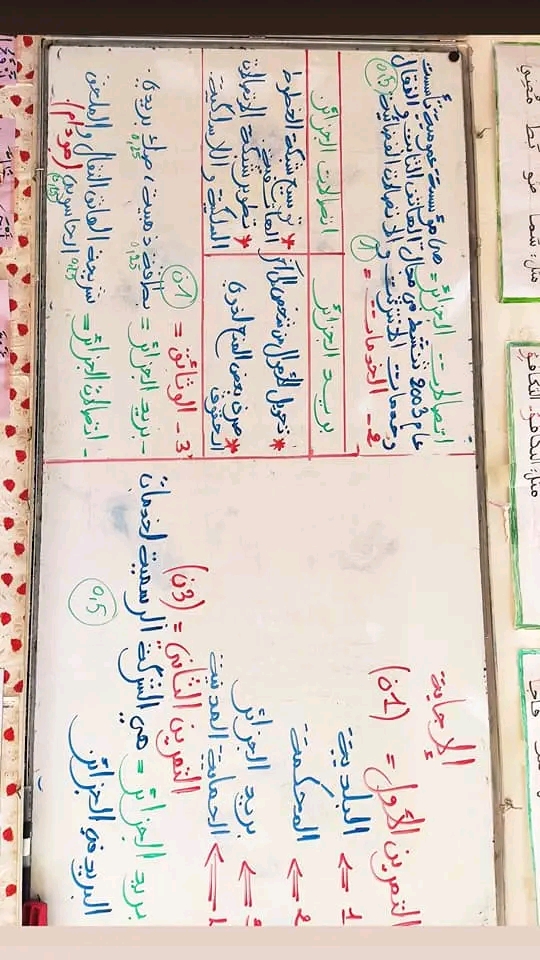 الإجابة
التمرين الأول = (1ن)
1 ← البلدية
2 ← المحكمة
بريد الجزائر
الحماية المدنية
التمرين الثاني = (3ن)
بريد الجزائر = هي الشركة الرسمية لخدمات
البريد في الجزائر 0,5
اتصالات الجزائر = هي مؤسسة عمومية تأست
عام 2003 تنشط في مجال الهاتف الثابت و النقال
وخدمات الانترنت و الاتصالات الفضائية 0,5
2 - الخدمات = 1
بريد الجزائر
اتصالات الجزائر
* تحويل الأموال من شخص إلى آخر
* صرف بعض المنح لذوي
الحقوق
* توسيع شبكة الخطوط
الهاتفية
* تطوير شبكة الاتصالات
السلكية و اللاسلكية
3 - الوثائق = 1ن
- بريد الجزائر = بطاقة ذهبية 0,25 ، صك بريدي 0,25
- اتصالات الجزائر = شريحة الهاتف النقال والملحق
الحاسوبي (مودام)
0,25
0,25